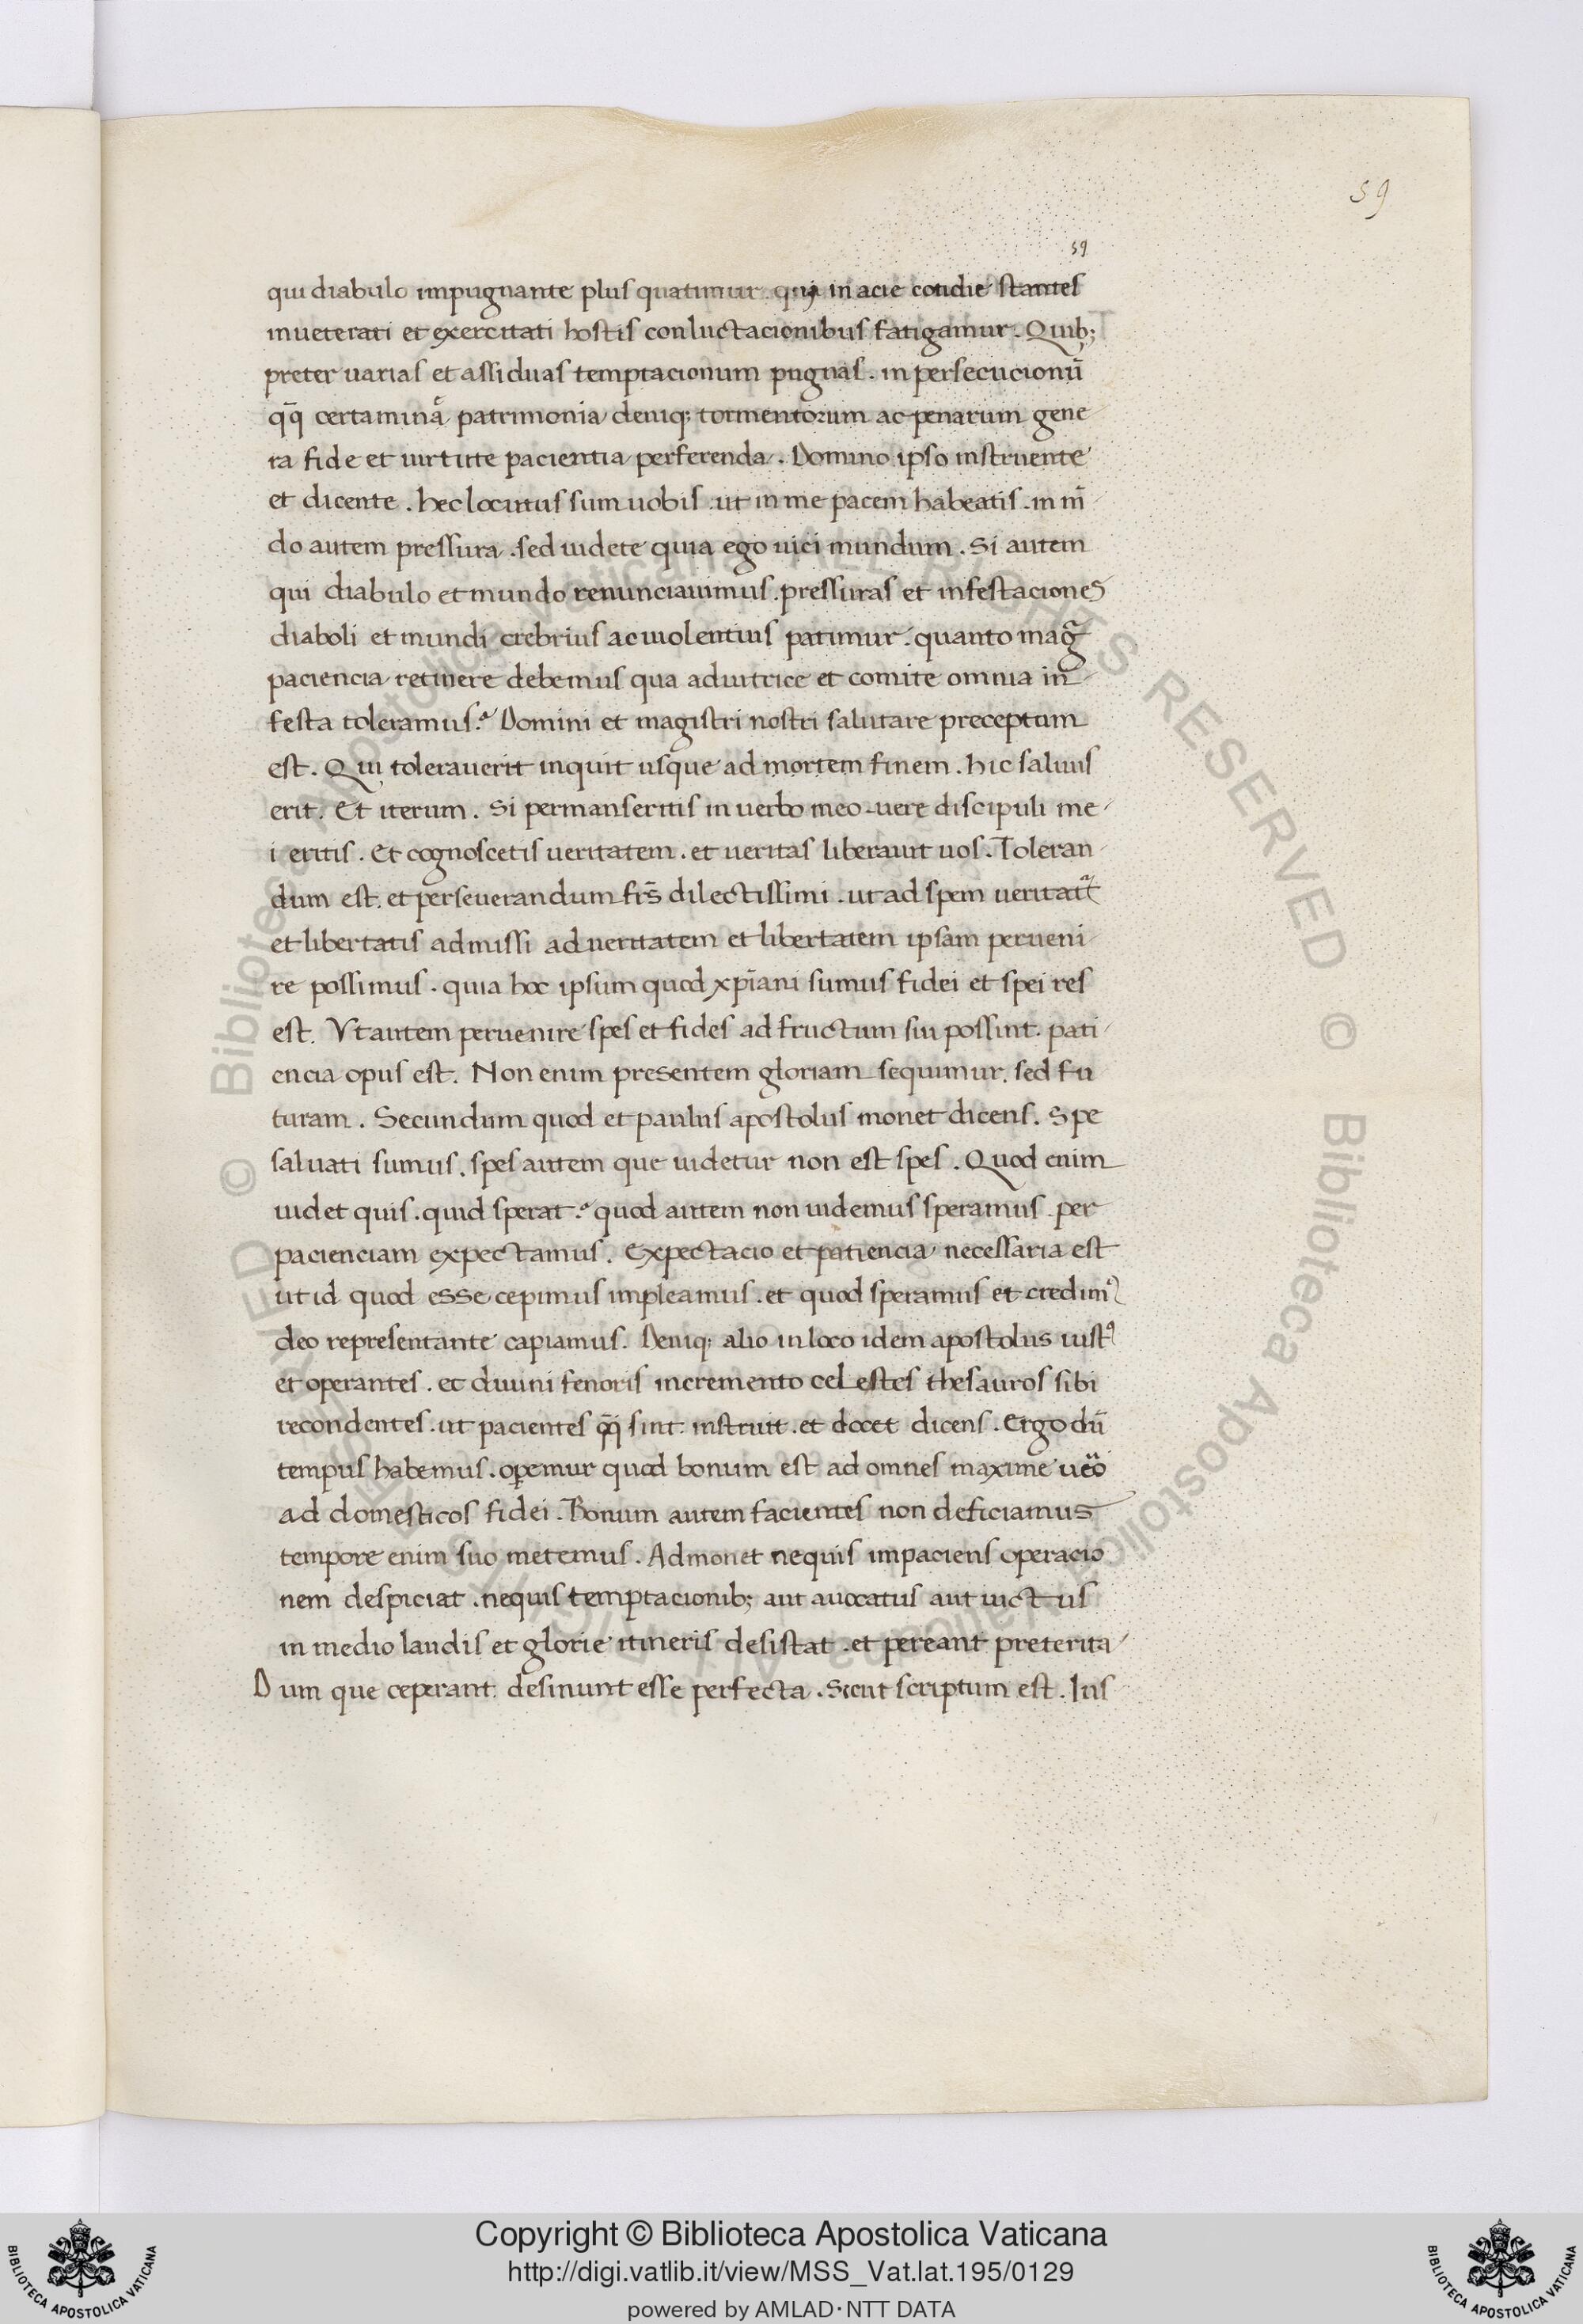 59
59
qui diabulo impugnante plus quatimur . qui in acie cotidie stantes
inueterati et exercitati hostis conluctacionibus fatigamur . Quib;
preter uarias et assiduas temptacionum pugnas . in persecucionū
qq̄ certamina patrimonia deniq; tormentorum ac penarum gene
ra fide et uirtute pacientia perferenda . Domino ipso instruente
et dicente . hec locutus sum uobis . ut in me pacem habeatis . in m̄
do autem pressura . sed uidete quia ego uici mundum . Si autem
qui diabulo et mundo renunciauimus . pressuras et infestaciones
diaboli et mundi crebrius ac uiolentius patimur . quanto mag̃
paciencia retinere debemus qua adiutrice et comite omnia in
festa toleramus . Domini et magistri nostri salutare preceptum
est . Qui tolerauerit inquit usque ad mortem finem . hic saluus
erit . Et iterum . Si permanseritis in uerbo meo . uere discipuli me
i eritis . Et cognoscetis ueritatem . et ueritas liberauit uos . Toleran
dum est . et perseuerandum frs̄ dilectissimi . ut ad spem ueritat̃
et libertatis admissi ad ueritatem et libertatem ipsam perueni
re possimus . quia hoc ipsum quod xp̄iani sumus fidei et spei res
est . Vt autem peruenire spes et fides ad fructum sui possint . pati
encia opus est . Non enim presentem gloriam sequimur . sed fu
turam . Secundum quod et paulus apostolus monet dicens . Spe
saluati sumus . spes autem que uidetur non est spes . Quod enim
uidet quis . quid sperat . quod autem non uidemus speramus . per
pacienciam expectamus . Expectacio et patiencia necessaria est
ut id quod esse cepimus impleamus . et quod speramus et credim᾽
deo representante capiamus . Deniq; alio in loco idem apostolus iust᾽
et operantes . et diuini fenoris incremento celestes thesauros sibi
recondentes . ut pacientes qq̄ sint . instruit . et docet dicens . Ergo dū
tempus habemus . operemur quod bonum est ad omnes maxime uero
ad domesticos fidei . Bonum autem facientes non deficiamus
tempore enim suo metemus . Admonet nequis impaciens operacio
nem despiciat . nequis temptacionib; aut auocatus aut uictus
in medio laudis et glorie itineris desistat . et pereant preterita
Dum que ceperant . desinunt esse perfecta . Sicut scriptum est . Ius
© Biblioteca Apostolica Vaticana ALL RIGHTS RESERVED
BIBLIOTECA APOSTOLICA VATICANA
Copyright © Biblioteca Apostolica Vaticana
http://digi.vatlib.it/view/MSS_Vat.lat.195/0129
powered by AMLAD·NTT DATA
BIBLIOTECA APOSTOLICA VATICANA